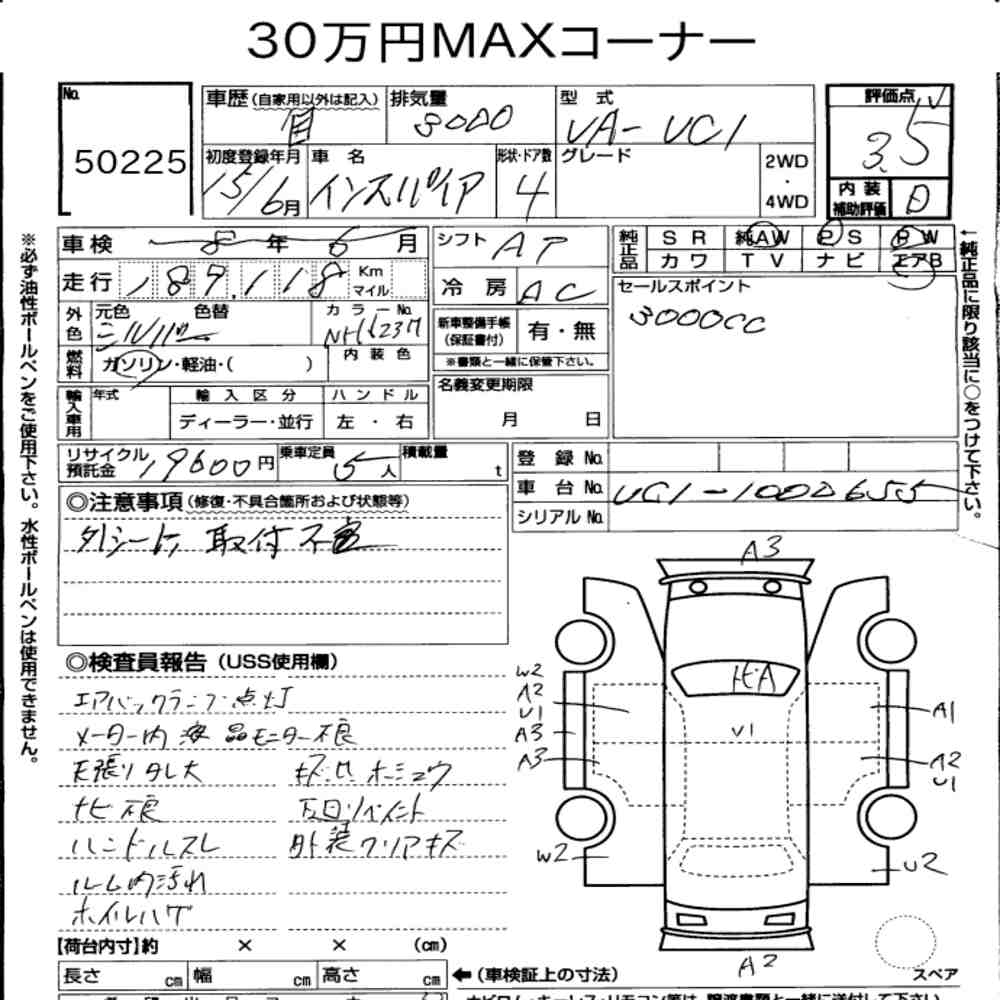 30万円MAXコーナー
No. 50225
車歴(自家用以外は記入) 自
排気量 3000
型式 UA-UC1
評価点 3.5
初度登録年月 15/6月
車名 インスパイア
形状・ドア数 4
グレード
2WD・4WD
内装補助評価 D
※必ず油性ボールペンをご使用下さい。水性ボールペンは使用できません。
車検 8年6月
シフト AT
純正品 SR 純AW PS PW
カワ TV ナビ エアB
←純正品に限り該当に○をつけて下さい。
走行 187,118 Km マイル
冷房 AC
セールスポイント
3000cc
外色 元色 シルバー 色替
カラーNo.
新車整備手帳(保証書付) 有・無
※書類と一緒に保管下さい。
燃料 ガソリン・軽油・( )
内装色
名義変更期限
月 日
輸入車用 年式 輸入区分 ハンドル
ディーラー・並行 左・右
リサイクル預託金 19600円
乗車定員 5人
積載量 t
登録No.
車台No. UC1-1000655
シリアルNo.
◎注意事項(修復・不具合箇所および状態等)
取付不
◎検査員報告(USS使用欄)
エアバックランプ点灯
メーター内液晶モニター不良
天張りタレ大
ナビ不良
ハンドルスレ
ルーム内汚れ
ホイルハゲ
キズ凹ホシュウ
下回りペイント
外装クリアキズ
A3
W2
A2
U1
A3
A3
W2
A
U1
A1
A2
U1
U2
A2
スペア
【荷台内寸】約 × × (cm)
長さ cm 幅 cm 高さ cm
←(車検証上の寸法)